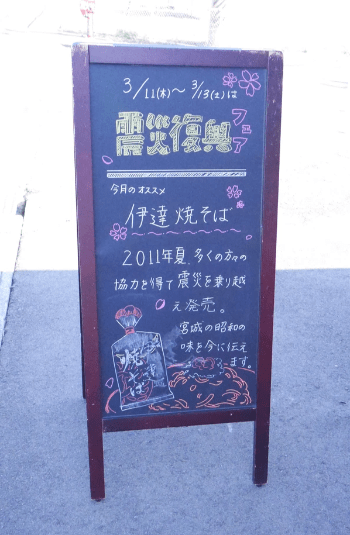 3/11(木)～3/13(土)は
震災復興フェア
今月のオススメ
伊達焼そば
2011年夏、多くの方々の
協力を得て震災を乗り越
え発売。
宮城の昭和の
味を今に伝え
ます。
焼そば